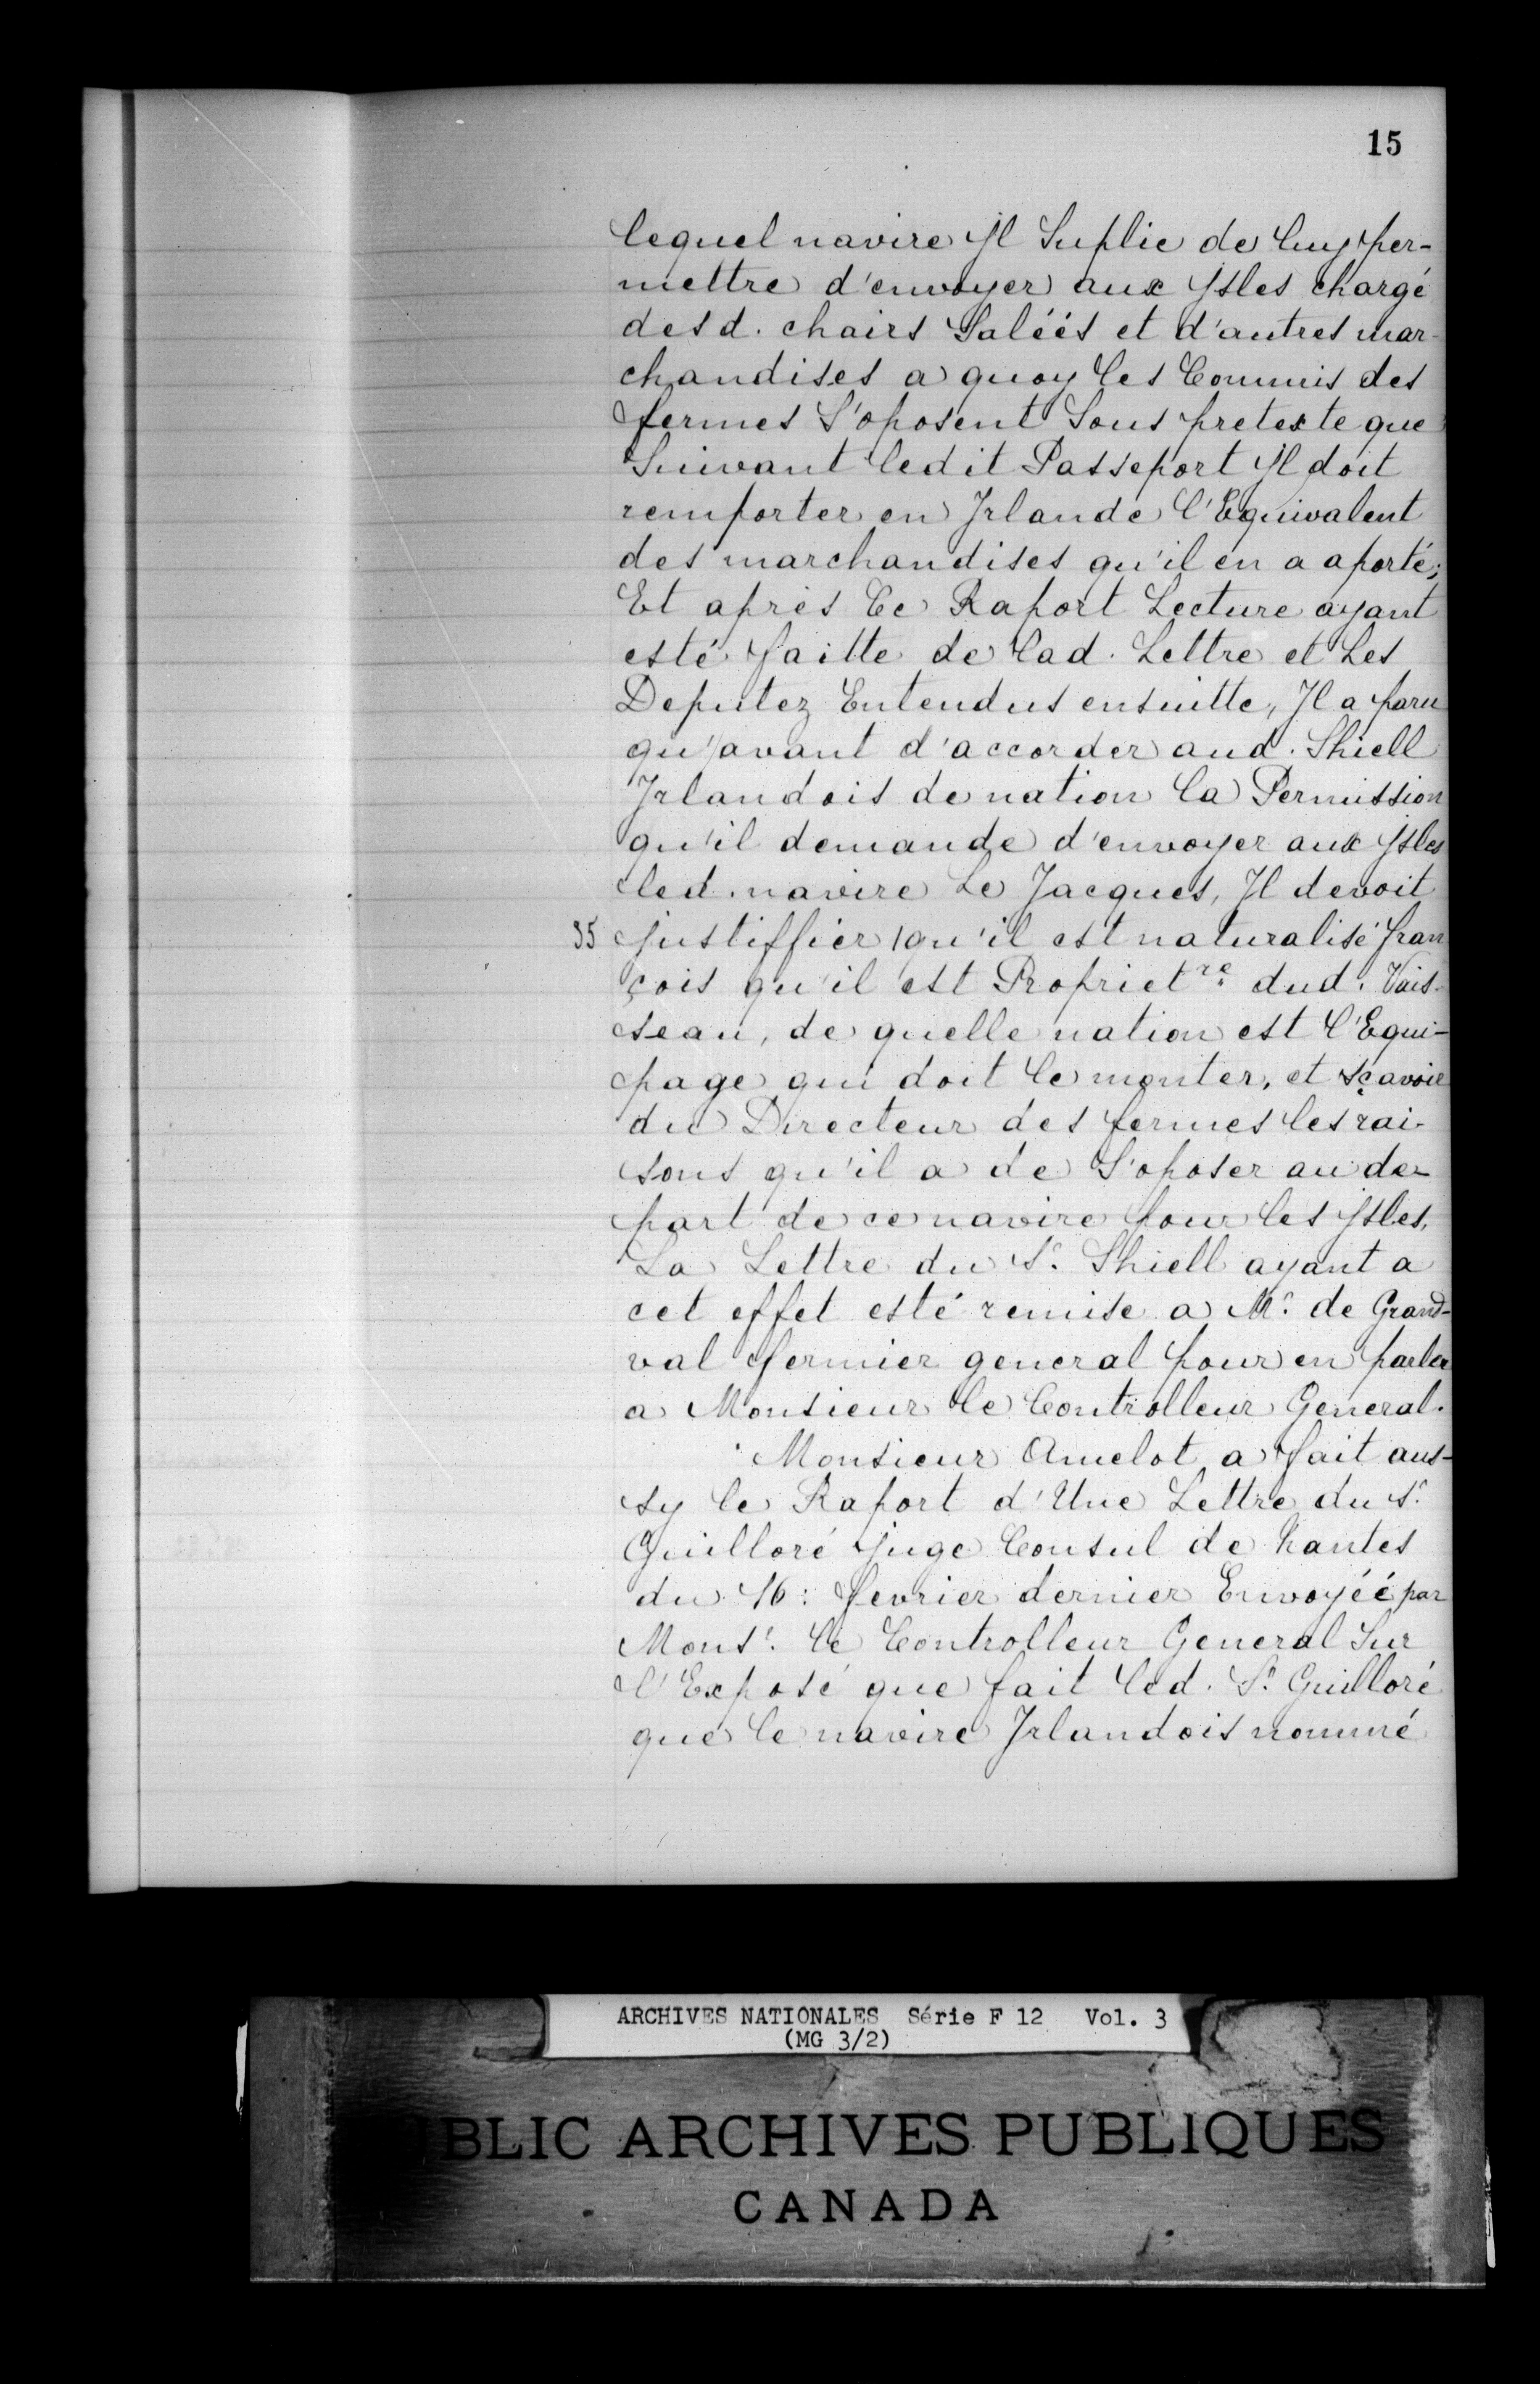 15
lequel navire Jl Suplie de luy per-
mettre d'envoyer aux Jsles chargé
des d. chairs Saléés et d'autres mar-
chandises a quoy les Commis des
fermes S'oposent Sous pretexte que
Suivant ledit Passeport Jl doit
remporter en Jrlande l'Equivalent
des marchandises qu'il en a aporté;
Et aprés le Raport Lecture ayant
esté faitte de lad. Lettre et Les
Deputez Entendus ensuitte, Jl a paru
qu'avant d'accorder aud. Shiell
Jrlandois de nation la Permission
qu'il demande d'envoyer aux Jsles
led. navire Le Jacques, Jl devoit
35 justiffier | qu'il est naturalisé fran
çois qu'il est Propriet.re dud. Vais-
seau, de quelle nation est l'Equi-
page qui doit le monter, et sçavoir
du Directeur des fermes les rai-
sons qu'il a de S'oposer au de-
part de ce navire pour les Jsles,
La Lettre du S.r Shiell ayant a
cet effet esté remise a M.r de Grand-
val fermier general pour en parler
a Monsieur le Controlleur General.
Monsieur Amelot a fait aus-
sy le Raport d'Une Lettre du S.r
Guilloré juge Consul de Nantes
du 16: fevrier dernier Envoyéé par
Mons.r le Controlleur General Sur
l'Exposé que fait led. S.r Guilloré
que le navire Jrlandois nommé
ARCHIVES NATIONALES Série F 12 Vol. 3
(MG 3/2)
BLIC ARCHIVES PUBLIQUES
CANADA